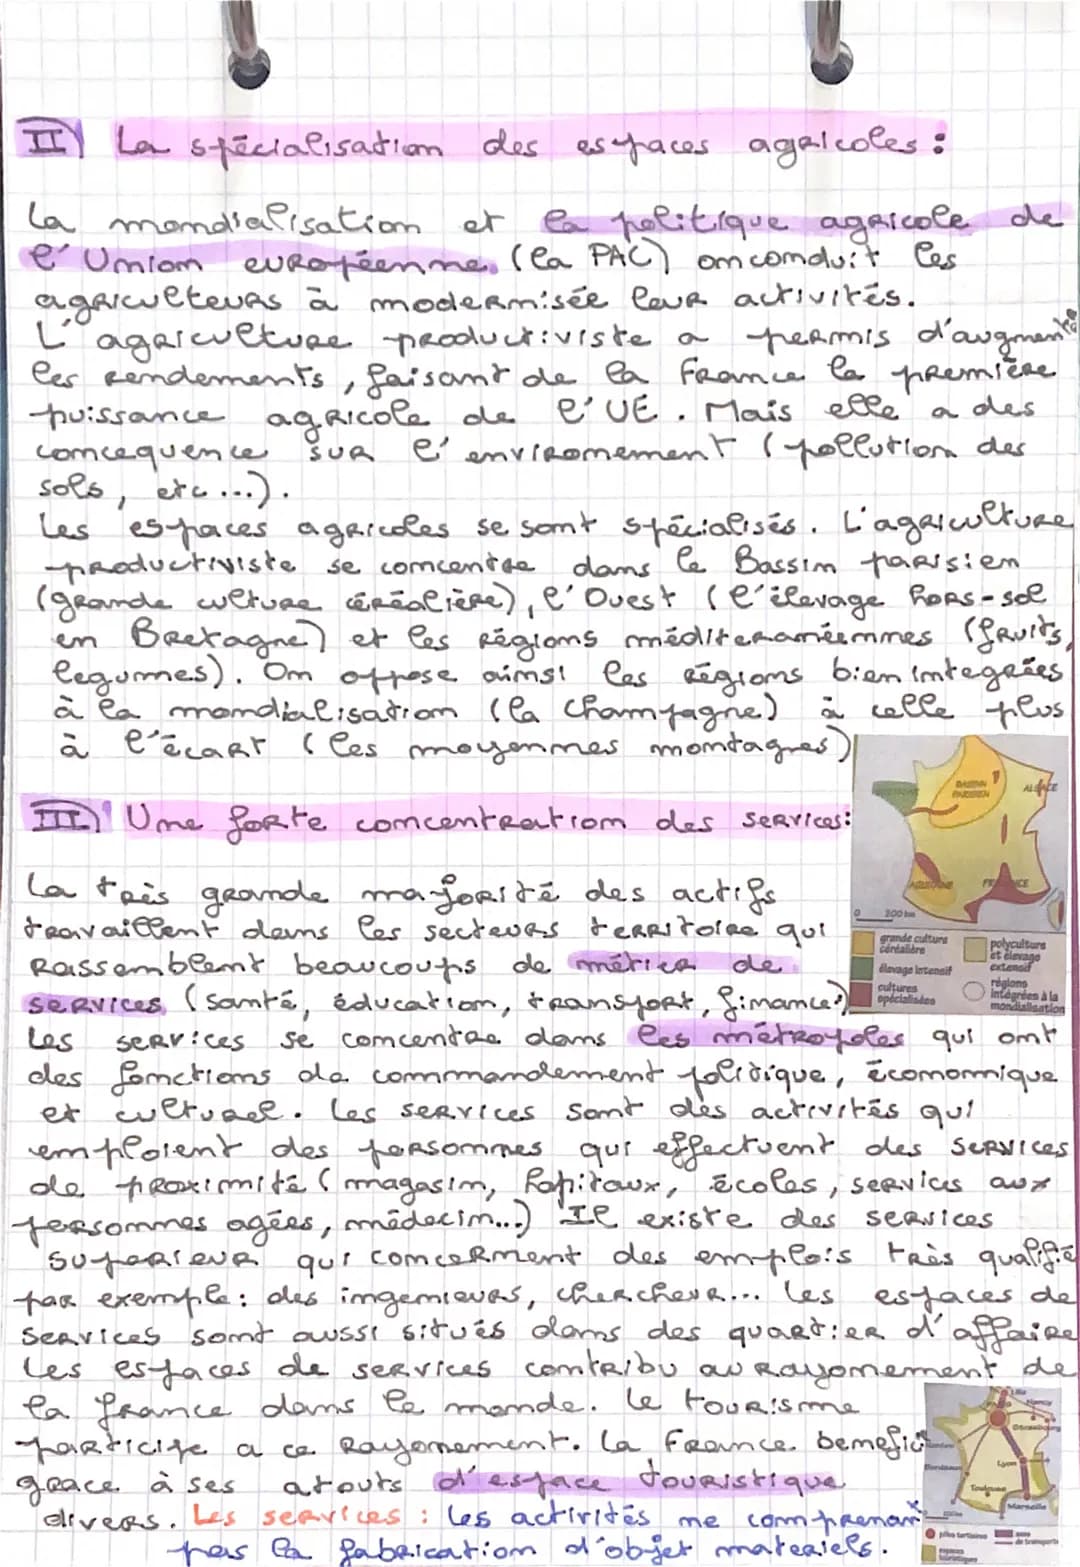 II) La spécialisation des espaces agricoles :
La mondialisation et la politique agricole de
l'Union européenne. (la PAC) on conduit les
agriculteurs à modernisée leur activités.
L'agriculture productiviste a permis d'augmenté
les rendements, faisant de la France la première
puissance agricole de l'UE. Mais elle a des
concequence sur l'environement (pollution des
sols, etc...).
Les espaces agricoles se sont spécialisés. L'agriculture
productiviste se concentre dans le Bassin parisien
(grande culture céréalière), l'Ouest (l'élevage hors-sol
en Bretagne) et les régions méditeranéennes (fruits,
legumes). On oppose ainsi les régions bien integrées
à la mondialisation (la Champagne) à celle plus
à l'écart (les moyennes montagnes)
BASSIN
PARISIEN
ALSACE
AQUITAINE
0 200 km
grande culture
céréalière
élevage intensif
cultures
spécialisées
polyculture
et élevage
extensif
régions
intégrées à la
mondialisation
III) Une forte concentration des services:
La très grande majorité des actifs
travaillent dans les secteurs territoire qui
rassemblent beaucoups de métier de
services (santé, éducation, transport, finance.)
Les services se concentre dans les métropoles qui ont
des fonctions de commandement politique, économique
et culturel. Les services sont des activités qui
emploient des personnes qui effectuent des services
de proximité (magasin, hopitaux, écoles, services aux
personnes agées, médecin...) Il existe des services
superieur qui concernent des emplois très qualifié
par exemple: des ingenieurs, chercheur... Les espaces de
services sont aussi situés dans des quartier d'affaire
Les espaces de services contribu au rayonement de
la france dans le monde. Le tourisme
participe a ce rayonement. La France. benefici
grace à ses atouts d'espace touristique
divers. Les services : les activités ne comprenant
pas la fabrication d'objet materiels.
Lille
Paris
Nancy
Strasbourg
Nantes
Lyon
Bordeaux
Toulouse
Marseille
pôles tertiaires
axes
de transports
espaces
touristiques